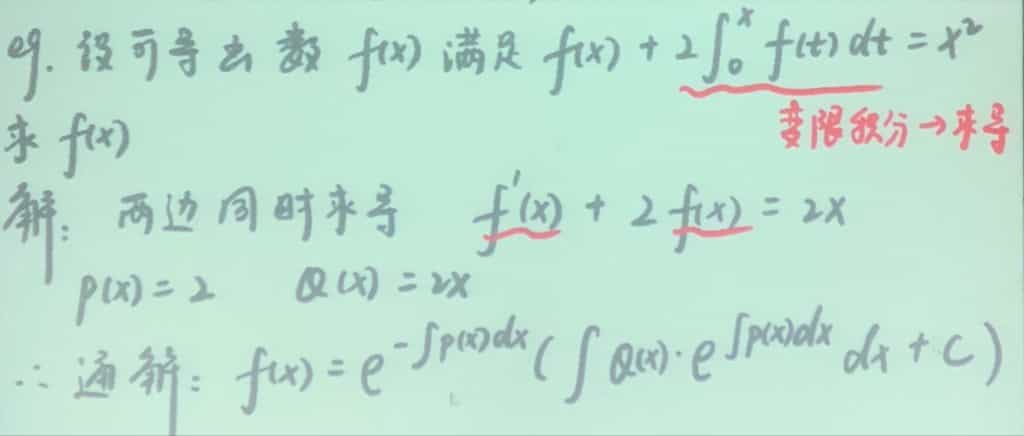 eg. 设可导函数 f(x) 满足 f(x) + 2∫₀ˣ f(t) dt = x²
变限积分→求导
求 f(x)
解: 两边同时求导 f'(x) + 2 f(x) = 2x
p(x) = 2 Q(x) = 2x
∴ 通解: f(x) = e^{-∫p(x)dx} (∫Q(x)·e^{∫p(x)dx} dx + C)